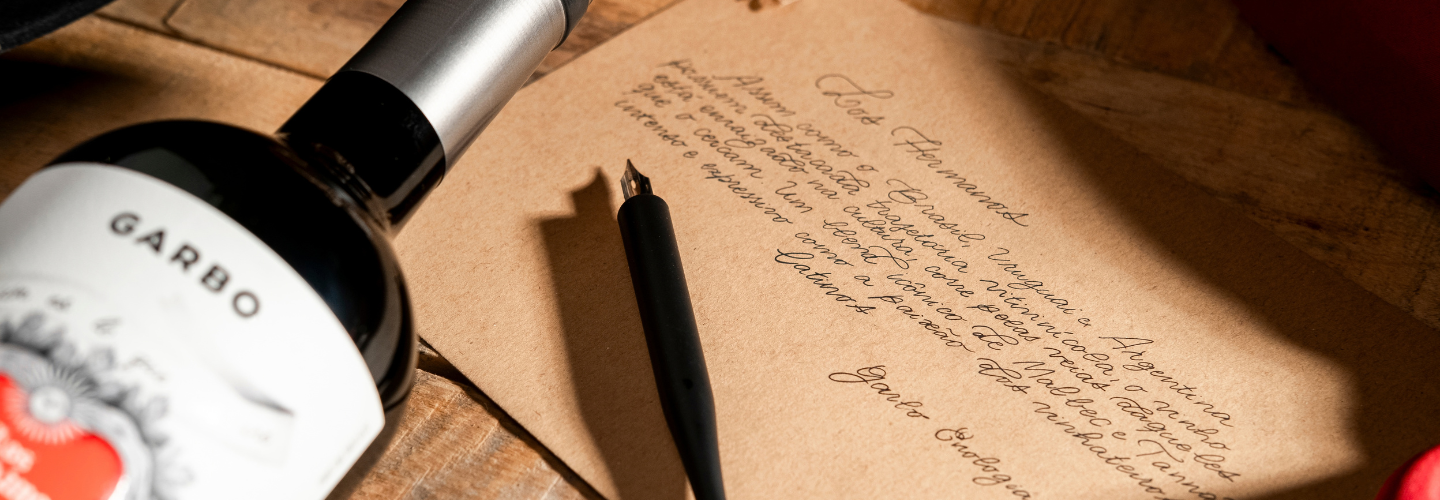 GARBO
Los Hermanos
Assim como o Brasil, Uruguai e Argentina
possuem destacada trajetória vitivinícola, o vinho
está enraizado na cultura, corre pelas veias daqueles
que o cercam. Um blend icônico de Malbec e Tannat
intenso e expressivo como a paixão dos vinhateiros
latinos
Garbo Enologia